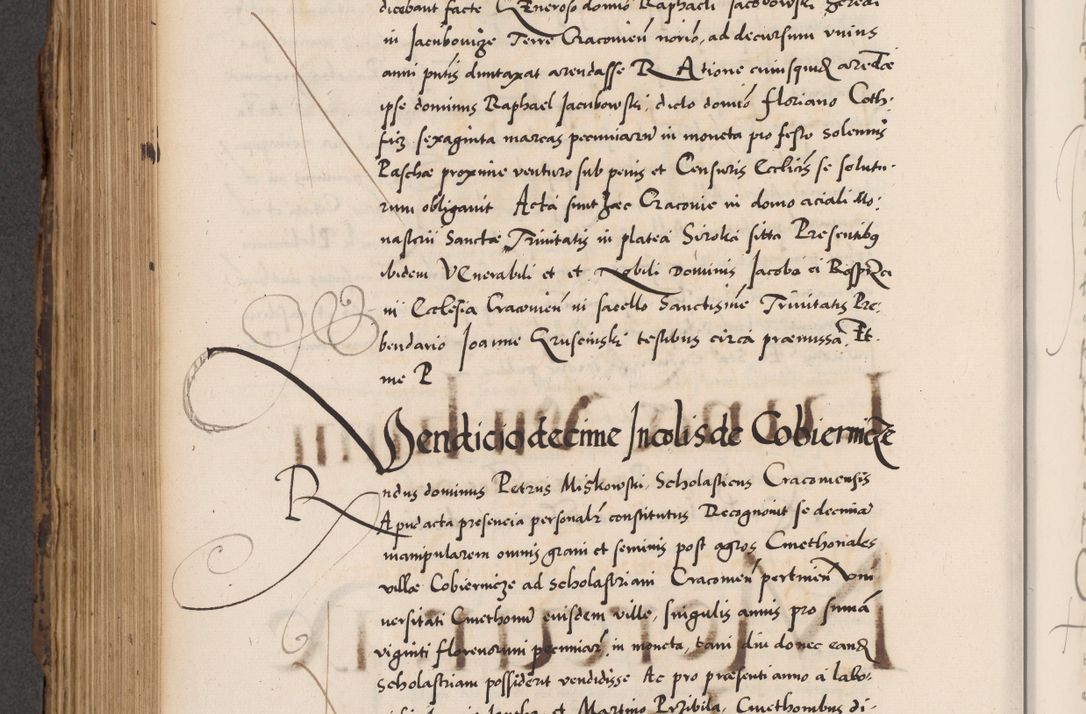 dicebant facte Generoso domino Raphaeli Jacubowski heredi
in Jacubovicze Terre Cracovien ad decursum unius
anni duntaxat arendasse Ratione cuiusquid arede
ipse dominus Raphael Jacubowski, dicto domio Floriano Coth-
ficz sexaginta marcas pecuniarum in moneta pro festo solennis
Paschæ proxime venturo sub penis et Censuris Ecclicis se solutu-
rum obligavit Acta sunt hæc Cracovie in domo aciali Mo-
nasterii Sanctæ Trinitatis in platea Siroka sitta Presentibus
ibidem Venerabili et et Nobili Dominis Jacobo
in Ecclesia Cracovien in sacello Sanctissime Trinitatis Pre-
bendario Joanne Gruscinski testibus circa præmissa Et
me P
Vendicio decime Incolis de Cobiernicze
Rndus dominus Petrus Miskowski, Scholasticus Cracoviensis
Apud acta presencia personaliter constitutus Recognovit se decimam
manipularem omnis grani et seminis post agros Cmethonales
villæ Cobiernicze ad Scholastriam Cracovien pertinen Uni
versitati Cmethonum eiusdem ville, singulis annis pro summa
viginti florenorum pecuniar in moneta, tam diu donec eand
Scholastriam possiderit vendidisse Ac pro præsenti anno a labo-
et Martino Przibila, Cmethonibus di-